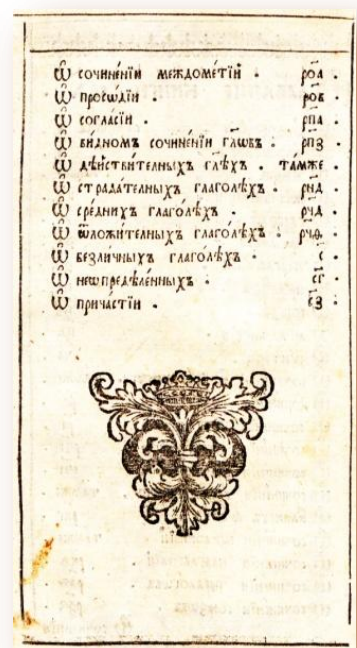 Ѿ сочине́нїи междоме́тїй . роа
Ѿ просѡ́дїи . роб
Ѿ согла́сїи . рпа
Ѿ ви́дномъ сочине́нїи гл҃ѡвъ . рпз
Ѿ дѣ́йстви́телныхъ гл҃ѣхъ . та́мже .
Ѿ страда́телныхъ глаго́лѣхъ . рчд .
Ѿ сре́днихъ глаго́лѣхъ . рчд .
Ѿ ѿложи́телныхъ глаго́лѣхъ . рчѳ .
Ѿ безли́чныхъ глаго́лѣхъ . с .
Ѿ неѡпредѣле́нныхъ . сг .
Ѿ прича́стїи . сз .